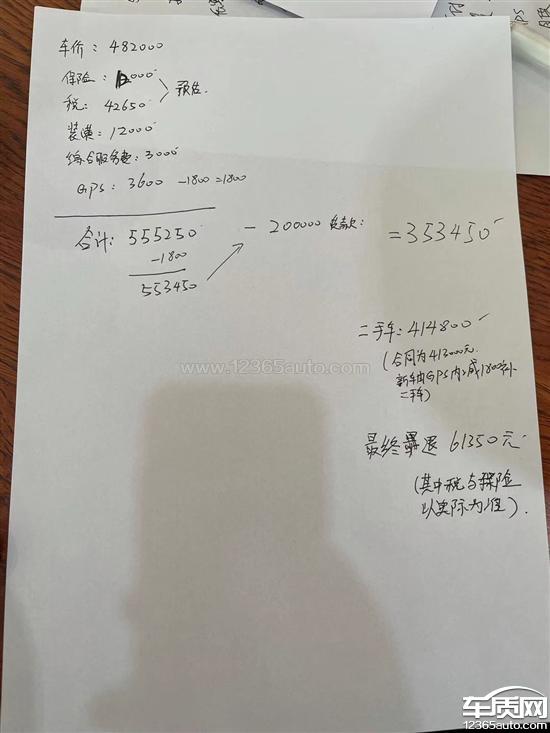 车价: 482000
保险: 12000
税: 42650 > 预估.
装潢: 12000
综合服务费: 3000
GPS: 3600 -1800 =1800
合计: 555250 - 200000贷款: =353450
-1800
553450
二手车: 414800
(合同为413000元.
新车由GPS内减1800补
二手车)
最终需退 61350元
(其中税与保险
以实际为准).
www.12365auto.com
车质网
12365auto.com